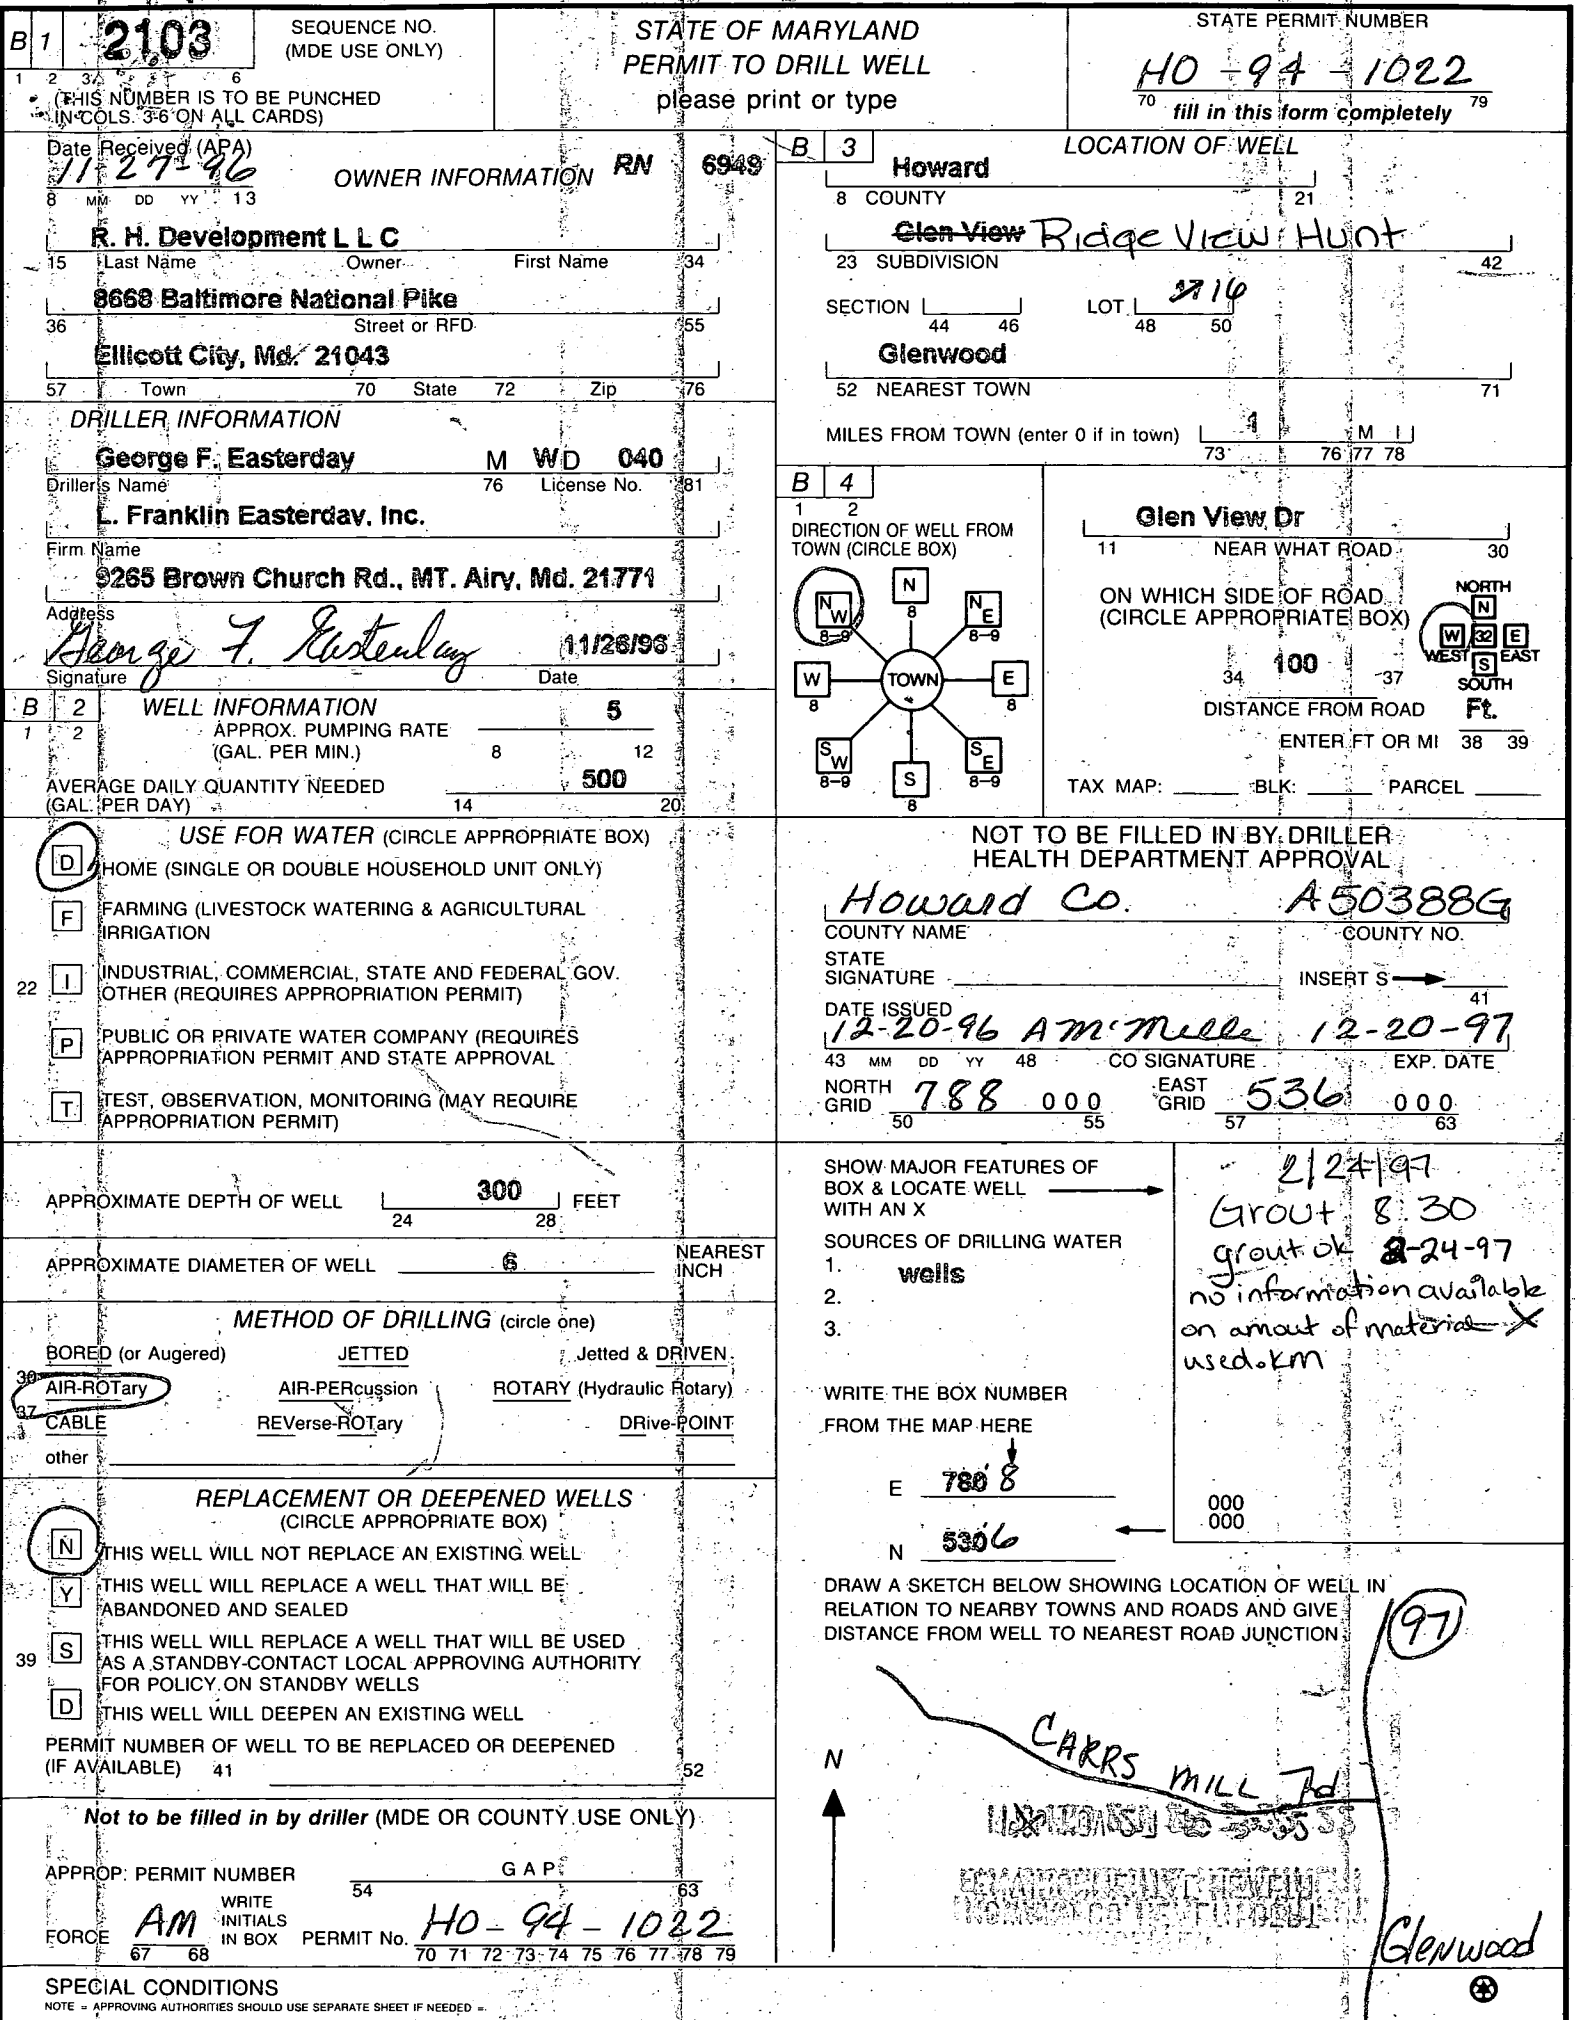 B 1 2103 SEQUENCE NO. (MDE USE ONLY)
1 2 3 6
(THIS NUMBER IS TO BE PUNCHED
IN COLS. 3-6 ON ALL CARDS)
STATE OF MARYLAND
PERMIT TO DRILL WELL
please print or type
STATE PERMIT NUMBER
HO - 94 - 1022
70 79
fill in this form completely
Date Received (APA)
11-27-96
8 MM DD YY 13
OWNER INFORMATION RN 6949
R. H. Development L L C
15 Last Name Owner First Name 34
8668 Baltimore National Pike
36 Street or RFD 55
Ellicott City, Md. 21043
57 Town 70 State 72 Zip 76
DRILLER INFORMATION
George F. Easterday M WD 040
Driller's Name 76 License No. 81
L. Franklin Easterday, Inc.
Firm Name
9265 Brown Church Rd., MT. Airy, Md. 21771
Address
George F. Easterday 11/26/96
Signature Date
B 2 WELL INFORMATION
1 2
APPROX. PUMPING RATE 5
(GAL. PER MIN.) 8 12
AVERAGE DAILY QUANTITY NEEDED 500
(GAL. PER DAY) 14 20
USE FOR WATER (CIRCLE APPROPRIATE BOX)
D HOME (SINGLE OR DOUBLE HOUSEHOLD UNIT ONLY)
F FARMING (LIVESTOCK WATERING & AGRICULTURAL
IRRIGATION
22 I INDUSTRIAL, COMMERCIAL, STATE AND FEDERAL GOV.
OTHER (REQUIRES APPROPRIATION PERMIT)
P PUBLIC OR PRIVATE WATER COMPANY (REQUIRES
APPROPRIATION PERMIT AND STATE APPROVAL
T TEST, OBSERVATION, MONITORING (MAY REQUIRE
APPROPRIATION PERMIT)
APPROXIMATE DEPTH OF WELL 300 FEET
24 28
APPROXIMATE DIAMETER OF WELL 6 NEAREST
INCH
METHOD OF DRILLING (circle one)
BORED (or Augered) JETTED Jetted & DRIVEN
30 AIR-ROTary AIR-PERcussion ROTARY (Hydraulic Rotary)
37 CABLE REVerse-ROTary DRive-POINT
other
REPLACEMENT OR DEEPENED WELLS
(CIRCLE APPROPRIATE BOX)
N THIS WELL WILL NOT REPLACE AN EXISTING WELL
Y THIS WELL WILL REPLACE A WELL THAT WILL BE
ABANDONED AND SEALED
39 S THIS WELL WILL REPLACE A WELL THAT WILL BE USED
AS A STANDBY-CONTACT LOCAL APPROVING AUTHORITY
FOR POLICY ON STANDBY WELLS
D THIS WELL WILL DEEPEN AN EXISTING WELL
PERMIT NUMBER OF WELL TO BE REPLACED OR DEEPENED
(IF AVAILABLE) 41 52
Not to be filled in by driller (MDE OR COUNTY USE ONLY)
APPROP. PERMIT NUMBER G A P
54 63
FORCE AM WRITE INITIALS IN BOX PERMIT No. HO - 94 - 1022
67 68 70 71 72 73 74 75 76 77 78 79
SPECIAL CONDITIONS
NOTE = APPROVING AUTHORITIES SHOULD USE SEPARATE SHEET IF NEEDED =
B 3 LOCATION OF WELL
Howard
8 COUNTY 21
Glen View Ridge View Hunt
23 SUBDIVISION 42
SECTION LOT 16
44 46 48 50
Glenwood
52 NEAREST TOWN 71
MILES FROM TOWN (enter 0 if in town) 1 M I
73 76 77 78
B 4
1 2
DIRECTION OF WELL FROM
TOWN (CIRCLE BOX)
N 8
NW 8-9
NE 8-9
W 8
TOWN
E 8
SW 8-9
S 8
SE 8-9
Glen View Dr
11 NEAR WHAT ROAD 30
ON WHICH SIDE OF ROAD
(CIRCLE APPROPRIATE BOX)
NORTH
N
W 32 E
WEST S EAST
SOUTH
34 100 37
DISTANCE FROM ROAD Ft.
ENTER FT OR MI 38 39
TAX MAP: BLK: PARCEL
NOT TO BE FILLED IN BY DRILLER
HEALTH DEPARTMENT APPROVAL
Howard Co. A50388G
COUNTY NAME COUNTY NO.
STATE
SIGNATURE INSERT S
41
DATE ISSUED
12-20-96 A McMille 12-20-97
43 MM DD YY 48 CO SIGNATURE EXP. DATE
NORTH GRID 788 000 EAST GRID 536 000
50 55 57 63
SHOW MAJOR FEATURES OF
BOX & LOCATE WELL
WITH AN X
SOURCES OF DRILLING WATER
1. wells
2.
3.
2/24/97
Grout 8:30
grout ok 2-24-97
no information available
on amout of material X
used. KM
WRITE THE BOX NUMBER
FROM THE MAP HERE
E 780 8
N 530 6
000
000
DRAW A SKETCH BELOW SHOWING LOCATION OF WELL IN
RELATION TO NEARBY TOWNS AND ROADS AND GIVE
DISTANCE FROM WELL TO NEAREST ROAD JUNCTION
97
CARRS MILL Rd
N
Glenwood